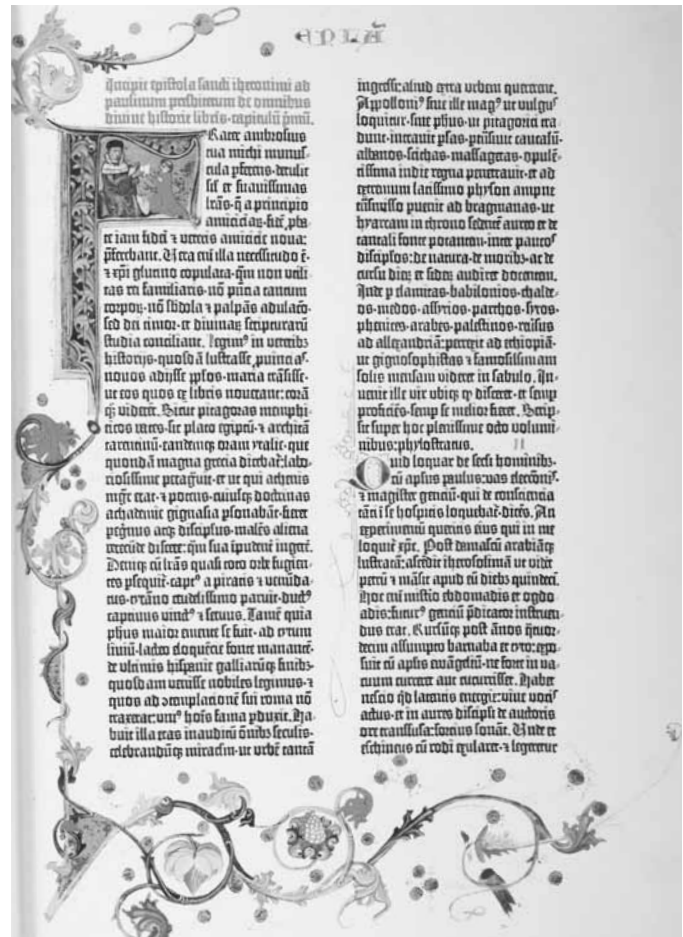 Incipit epistola sancti iheronimi ad
paulinum presbiterum de omnibus
divine historie libris· capitulū pmū.
Frater ambrosius
tua michi munus-
cula pferens· detulit
sil et suavissimas
lrās· q̄ a principio
amiciciaꝝ· fidē ,pba-
te iam fidei ⁊ veteris amicicie nova:
pferebant. Vera eni illa necessitudo ē·
⁊ xpi glutino copulata· qm non vtili-
tas rei familiaris· nō pncia tantum
corpoꝝ· nō sbdola ⁊ palpās adulacō·
sed dei timor· et divinaꝝ scripturarū
studia conciliant. Legimꝰ in veteribꝫ
historijs· quosdā lustrasse ,puincias·
novos adijsse pplos· maria trāsisse·
ut eos quos ex libris noverant: corā
qꝫ viderēt. Sicut pitagoras memphi-
ticos vates· sic plato egiptū· ⁊ architā
tarentinū· eandemqꝫ oram ytalie· que
quondā magna grecia dicebaꝷ: labo-
riosissime peragravit· et ut qui athenis
mgr̄ erat· ⁊ potens· cuiusqꝫ doctrinas
achademie gignasia psonabāt· fieret
pegrinus atqꝫ discipulus· malēs aliena
verecunde discere: qm sua īpudent ingere.
Deniqꝫ cū lrās quasi toto orbe fugien-
tes psequiꝷ· captꝰ a piratis ⁊ venunda-
tus· tyrāno crudelissimo paruit· ductꝰ
captivus vinctꝰ ⁊ servus. Tamē quia
phus maior emente se fuit· ad tytum
liviū· lacteo eloquētie fonte manantē·
de vltimis hispanie galliarūqꝫ finibꝫ·
quosdam venisse nobiles legimus· et
quos ad ꝯtemplacionē sui roma nō
traxerat: vniꝰ hoīs fama pduxit. Ha-
buit illa etas inauditū oībꝫ seculis·
celebrandūqꝫ miraclm· ut urbē tantā
ingressi: aliud extra urbem quererent.
Appolloniꝰ sive ille magꝰ ut vulgus
loquitur· sive phus· ut pitagorici tra-
dunt· intravit psas· ptrāsivit caucasū·
albanos· scithas· massagetas· opulē-
tissima indie regna penetravit· et ad
extremum latissimo physon ampne
trāsmisso puenit ad bragmanas· ut
hyarcam in throno sedentē aureo et de
tantali fonte potantem· inter paucos
discipulos· de natura· de moribꝫ· ac de
cursu dieꝝ et sideꝝ audiret docentem.
Inde p elamitas· babilonios· chalde-
os· medos· assyrios· parthos· syros·
phenices· arabes· palestinos· reversus
ad allexandriā: perrexit ad ethiopiā·
ut gignosophistas ⁊ famosissimam
solis mensam videret in sabulo. In-
venit ille vir ubiqꝫ qd disceret· et semp
proficiēs· semp se melior fieret. Scrip-
sit super hoc plenissime octo volumi-
nibus: phylostratus.
Quid loquar de secli hominibꝫ·
cū aplus paulus: vas eleccōnis·
⁊ magister genciū· qui de consciencia
tāti ī se hospitis loquebaꝷ· dicēs. An
experimentū queritis eius qui in me
loquiꝷ xpc. Post damascū arabiāqꝫ
lustratā: ascēdit iherosolimā ut vidēt
petrū ⁊ māsit apud eū diebꝫ quindeci.
Hoc eni misterio ebdomadis et ogdo-
adis: futurꝰ genciū pdicator instruen-
dus erat. Rursūqꝫ post ānos quor-
decim assumpto barnaba et tyto: expo-
suit cū aplis evangeliū· ne forte in va-
cuum curreret aut cucurrisset. Habet
nescio qd latentis energie: vive vocis
actus· et in aures discipli de auctoris
ore transfusa: forcius sonat. Unde et
eschineus cū rodi exularet· ⁊ legeretur